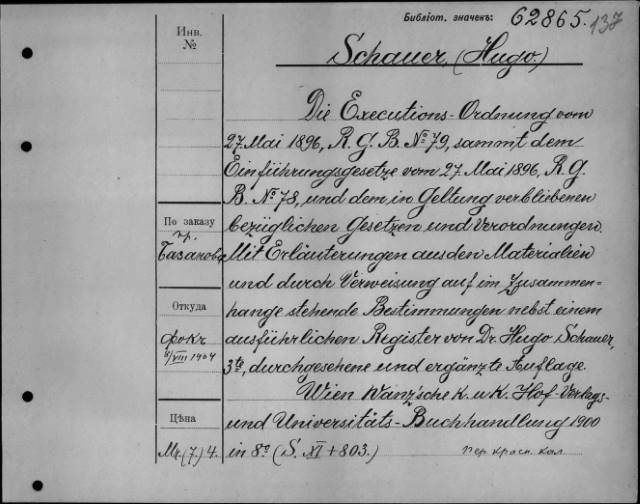 Библіот. значекъ: 62865. 137
Инв.
№
Schauer, (Hugo.)
Die Executions-Ordnung vom
27. Mai 1896, R. G. B. № 79, sammt dem
Einführungsgesetze vom 27. Mai 1896, R. G.
B. № 78, und dem in Geltung verbliebenen
bezüglichen Gesetzen und Verordnungen.
Mit Erläuterungen aus den Materialien
und durch Verweisung auf im Zusammen-
hange stehende Bestimmungen nebst einem
ausführlichen Register von Dr. Hugo Schauer,
3te, durchgesehene und ergänzte Auflage.
Wien Manz'sche k. u. k. Hof-Verlags-
und Universitäts-Buchhandlung 1900
in 8º (S. XI + 803.)
пер. красн. кол.
По заказу
пр.
Базанова
Откуда
Фокк
/VIII 1904
Цѣна
Mr. (7) 4.